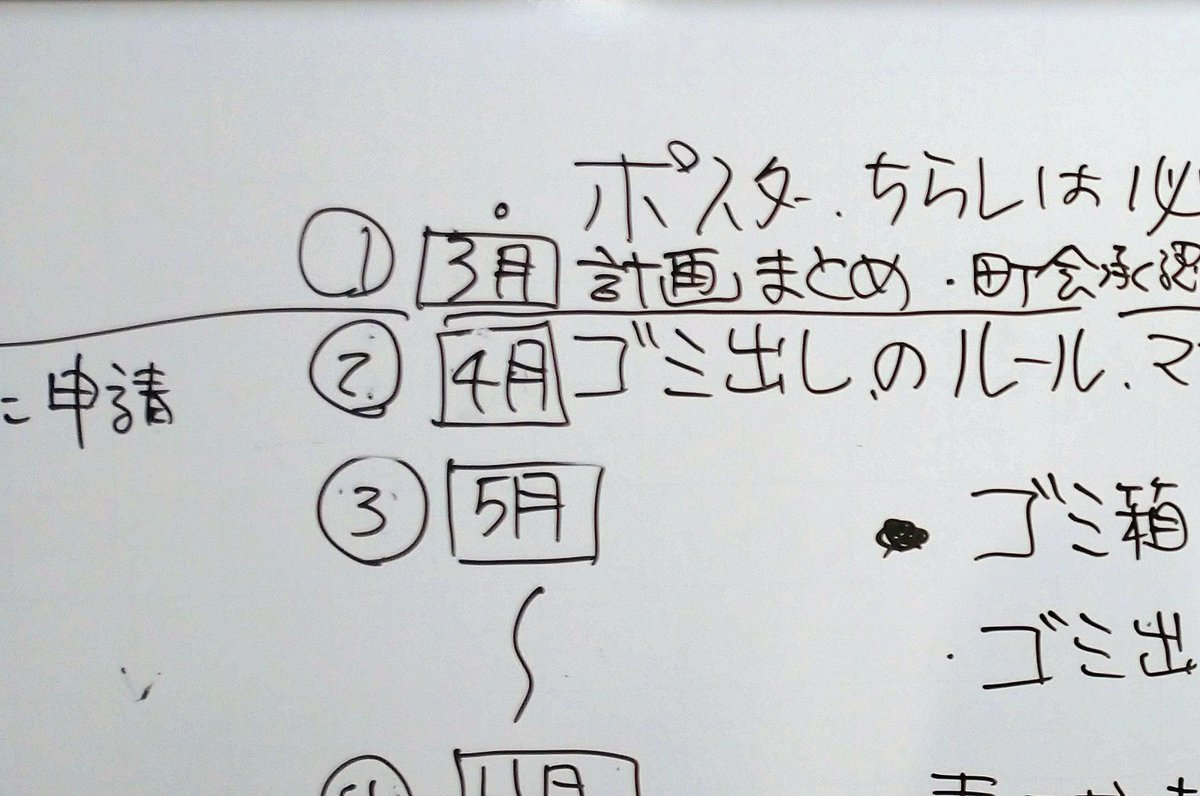 ポスター、ちらしは必
① 3月 計画まとめ ・町会承認
② 4月 ゴミ出しのルール、マ
に申請
③ 5月
● ゴミ箱
〜
・ゴミ出
11月